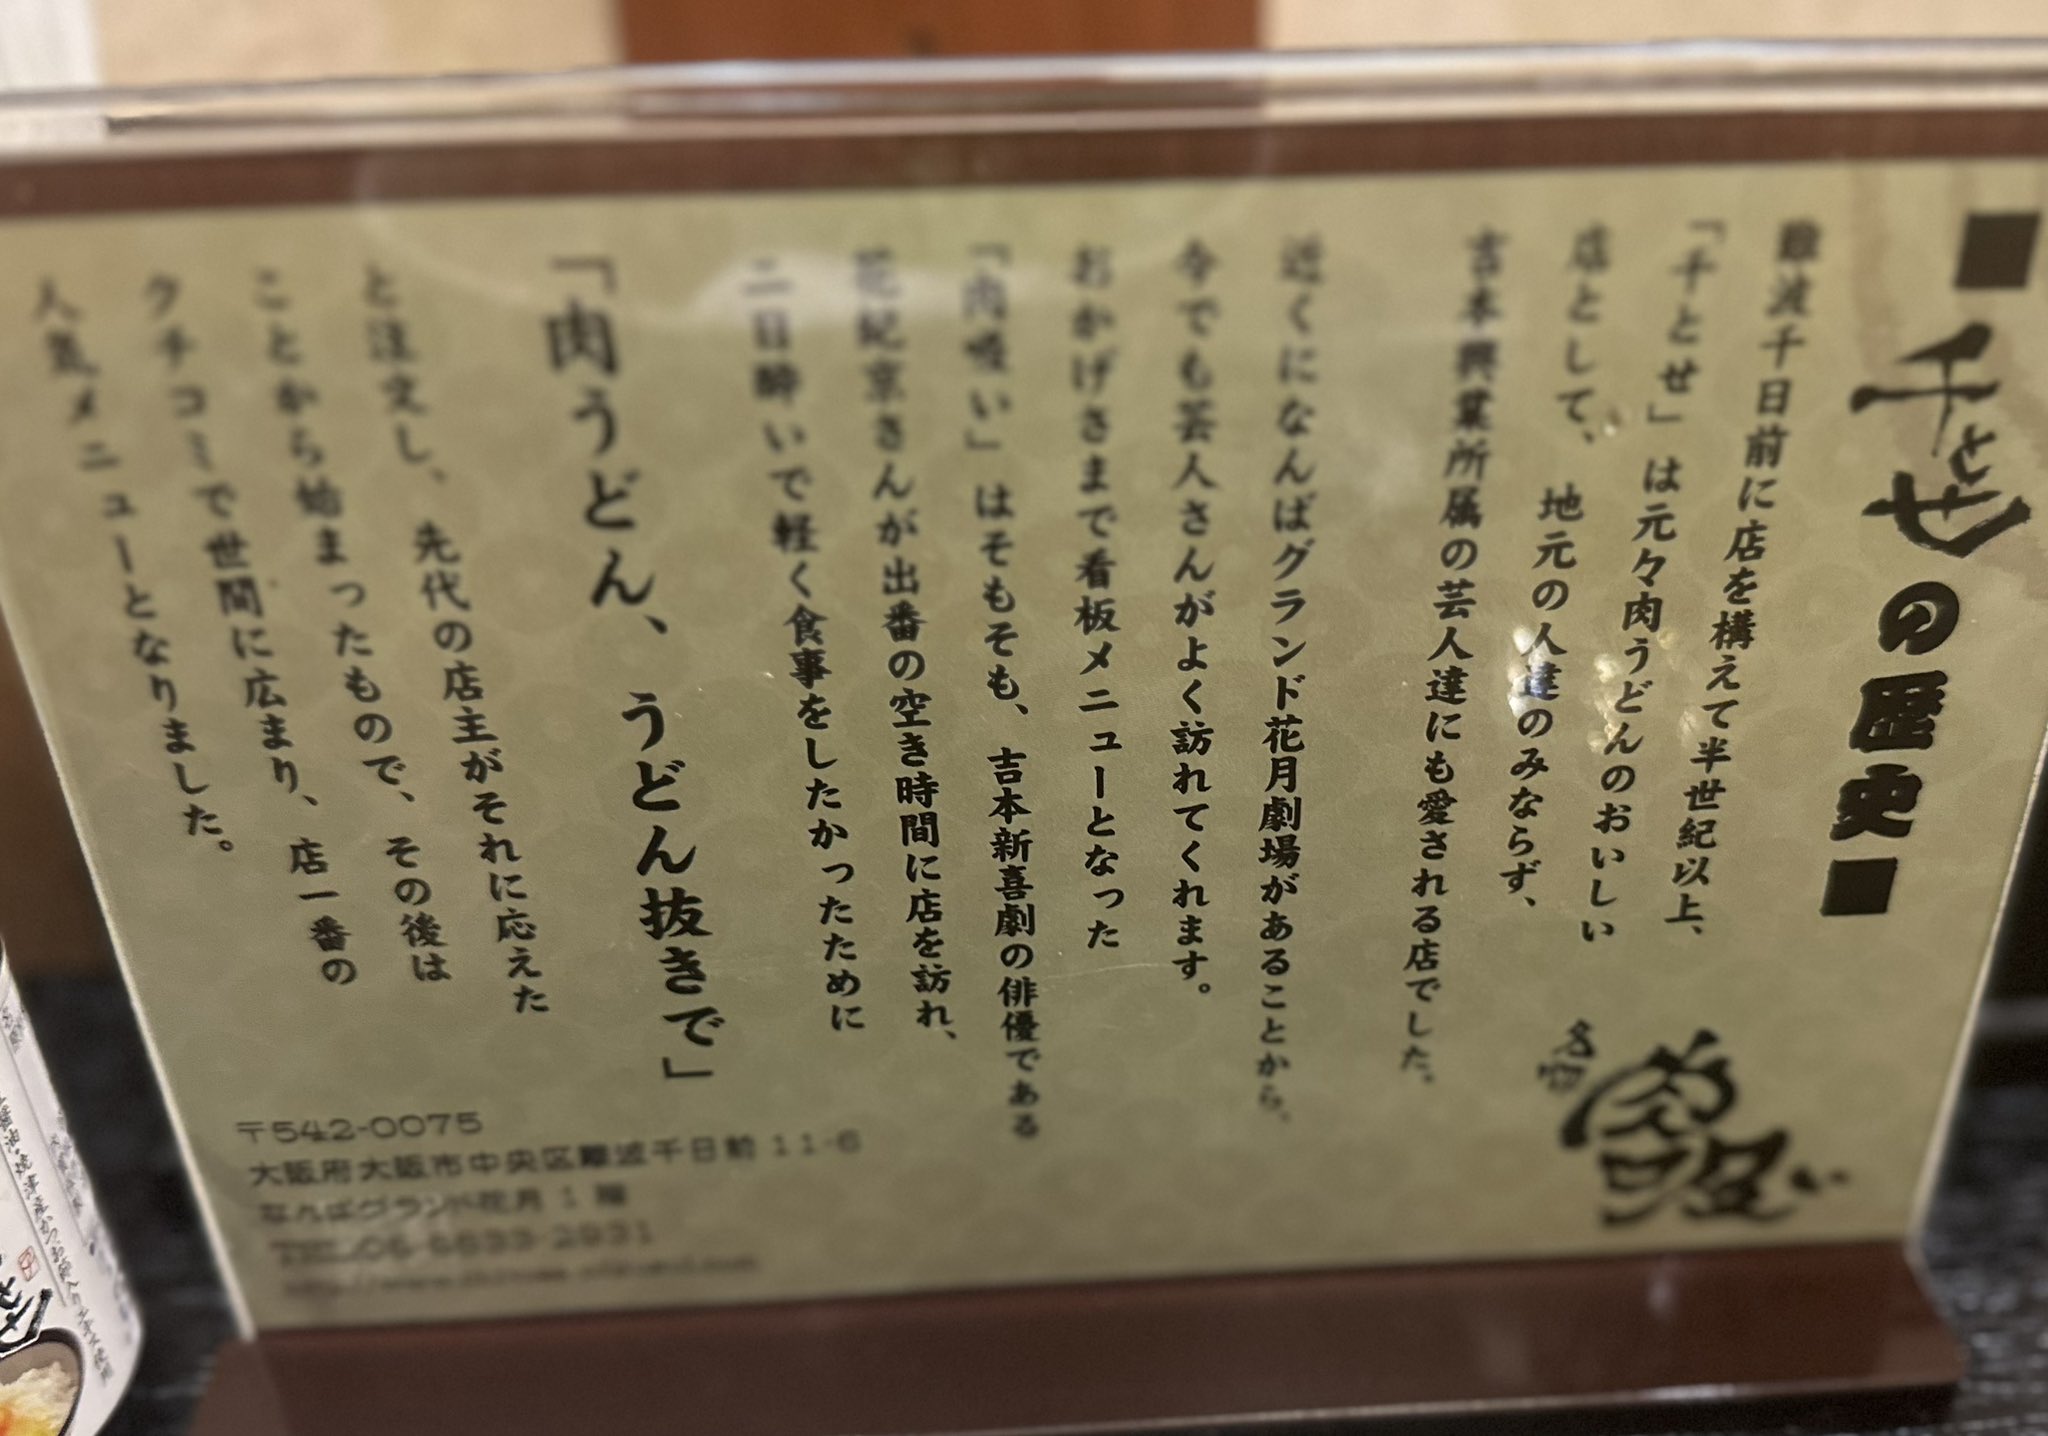 ■千とせの歴史■
難波千日前に店を構えて半世紀以上、
「千とせ」は元々肉うどんのおいしい
店として、地元の人達のみならず、
吉本興業所属の芸人達にも愛される店でした。
近くになんばグランド花月劇場があることから、
今でも芸人さんがよく訪れてくれます。
おかげさまで看板メニューとなった
「肉吸い」はそもそも、吉本新喜劇の俳優である
花紀京さんが出番の空き時間に店を訪れ、
二日酔いで軽く食事をしたかったために
「肉うどん、うどん抜きで」
と注文し、先代の店主がそれに応えた
ことから始まったもので、その後は
クチコミで世間に広まり、店一番の
人気メニューとなりました。
名物
肉吸い
〒542-0075
大阪府大阪市中央区難波千日前 11-6
なんばグランド花月 1 階
06-6633-2931